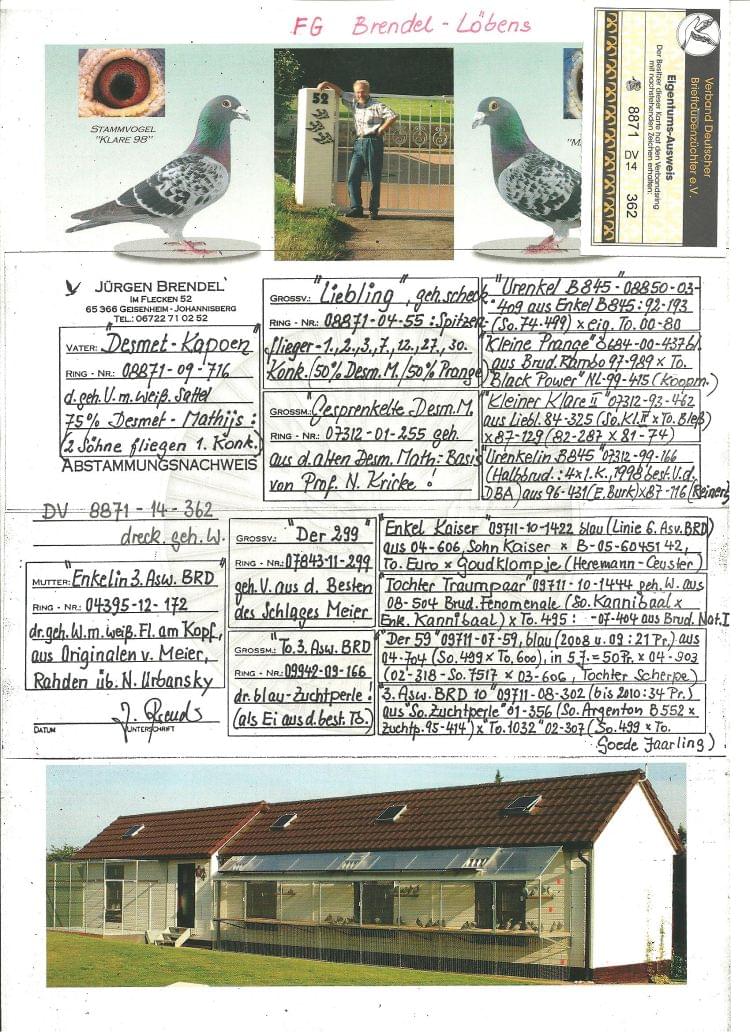 FG Brendel-Löbens
STAMMVOGEL
"KLARE 98"
52
Verband Deutscher
Brieftaubenzüchter e.V.
Eigentums-Ausweis
Der Besitzer dieser Karte hat den Verbandsring
mit nachstehenden Zeichen erhalten:
8871 DV 14 362
JÜRGEN BRENDEL
IM FLECKEN 52
65 366 GEISENHEIM - JOHANNISBERG
TEL.: 06722 71 02 52
VATER: "Desmet-Kapoen"
RING - NR.: 08871-09-716
d.geh.V.m.weiß.Sattel
75% Desmet-Mathijs:
(2 Söhne fliegen 1. Konk.)
ABSTAMMUNGSNACHWEIS
GROSSV.: "Liebling", geh.scheck
RING - NR.: 08871-04-55: Spitzen-
flieger-1.,2.,3.,7.,12.,27.,30.
Konk. (50% Desm.M./50% Prange)
GROSSM.: "Gesprenkelte Desm.M.
RING - NR.: 07312-01-255 geh.
aus d.alten Desm. Math.-Basis
von Prof. N. Kricke!
"Urenkel B845" 08850-03-
409 aus Enkel B845: 92-193
(So.74-499) x eig. To. 00-80
"Kleine Prange" S684-00-437 bl.
aus Brud. Rambo 97-989 x To.
"Black Power" NL-99-415 (Koopm.)
"Kleiner Klare II" 07312-93-462
aus Liebl. 84-325 (So.Kl.II x To. Bleß)
x 87-129 (82-287 x 81-74)
"Urenkelin B845" 07312-99-166
(Halbbrud.: 4x1.K., 1998 best.V.d.
DBA) aus 96-431 (E. Burk) x 87-116 (Reinerz)
DV 8871-14-362
dreck. geh. W.
MUTTER: "Enkelin 3. Asw. BRD
RING - NR.: 04395-12-172
dr.geh.W.m.weiß.Fl.am Kopf,
aus Originalen v. Meier,
Rahden üb. N. Urbansky
DATUM
UNTERSCHRIFT
GROSSV.: "Der 299"
RING - NR.: 07843-11-299
geh.V. aus d. Besten
des Schlages Meier
GROSSM.: "To.3. Asw. BRD
RING - NR.: 09942-09-166
dr. blau-Zuchtperle!
(als Ei aus d. best. To.)
"Enkel Kaiser" 09711-10-1422 blau (Linie 6. Asv. BRD)
aus 04-606, Sohn Kaiser x B-05-6045142,
To. Euro x Goudklompje (Heremann-Ceuster)
"Tochter Traumpaar" 09711-10-1444 geh.W. aus
08-504 Brud. Fenomenale (So. Kannibaal x
Enk. Kannibaal) x To. 495: -07-404 aus Brud. Nat. I
"Der 59" 09711-07-59, blau (2008 u. 09: 21 Pr.) aus
04-704 (So. 499 x To. 600), in 5 J. = 50 Pr. x 04-903
(02-318-So. 7517 x 03-606, Tochter Scherpe)
"3. Asw. BRD 10" 09711-08-302 (bis 2010: 34 Pr.)
aus "So. Zuchtperle" 01-356 (So. Argenton B 552 x
Zuchtp. 95-414) x "To. 1032" 02-307 (So. 499 x To.
Goede Jaarling)